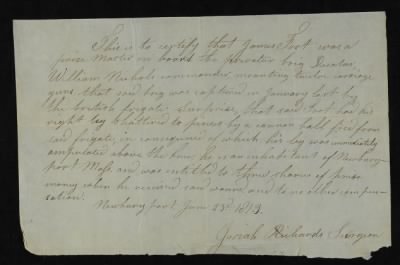 This is to certify that James Foot was a
prize Master on board the privateer brig Decatur
William Nichols commander, mounting twelve carriage
guns that said brig was captured in January last by
the british frigate Surprise, that said Foot had his
right leg shattered to pieces by a cannon ball fired from
said frigate, in consequence of which his leg was immediately
amputated above the knee, he is an inhabitant of Newbury-
port Mass. and was entitled to three shares of prize
money when he received said wound and to no other compen-
sation.
Newburyport June 23d 1813.
Josiah Richards Surgeon